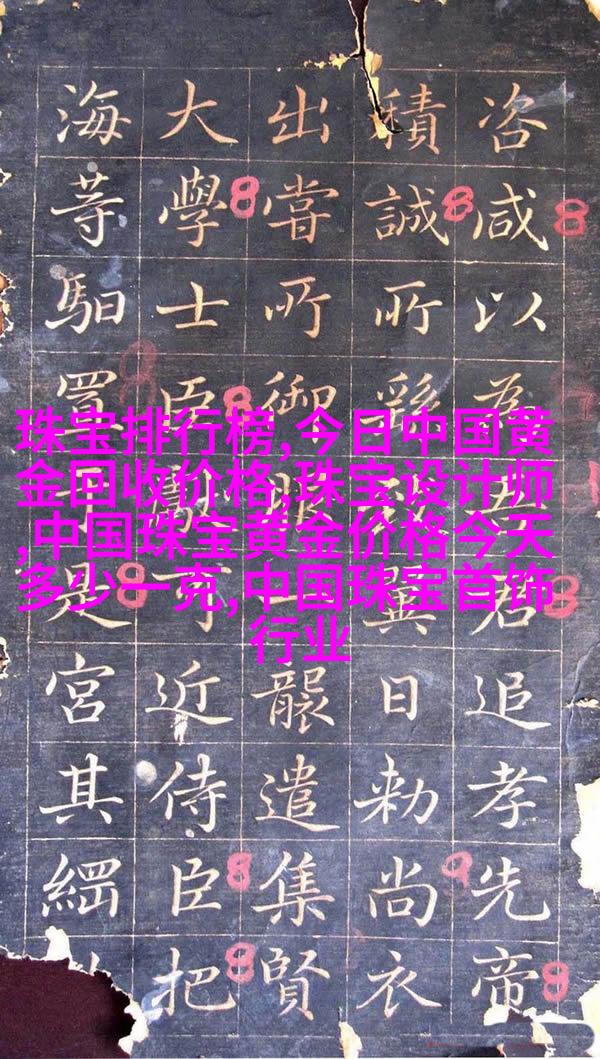 咨咸以為五君追孝先帝
積誠所日勑尚衣
出嘗所御服一襲遣集賢
大學士臣可近侍臣把
海等馹置是宮其
珠宝排行榜,今日中国黄
金回收价格,珠宝设计师
,中国珠宝黄金价格今天
多少一克,中国珠宝首饰
行业